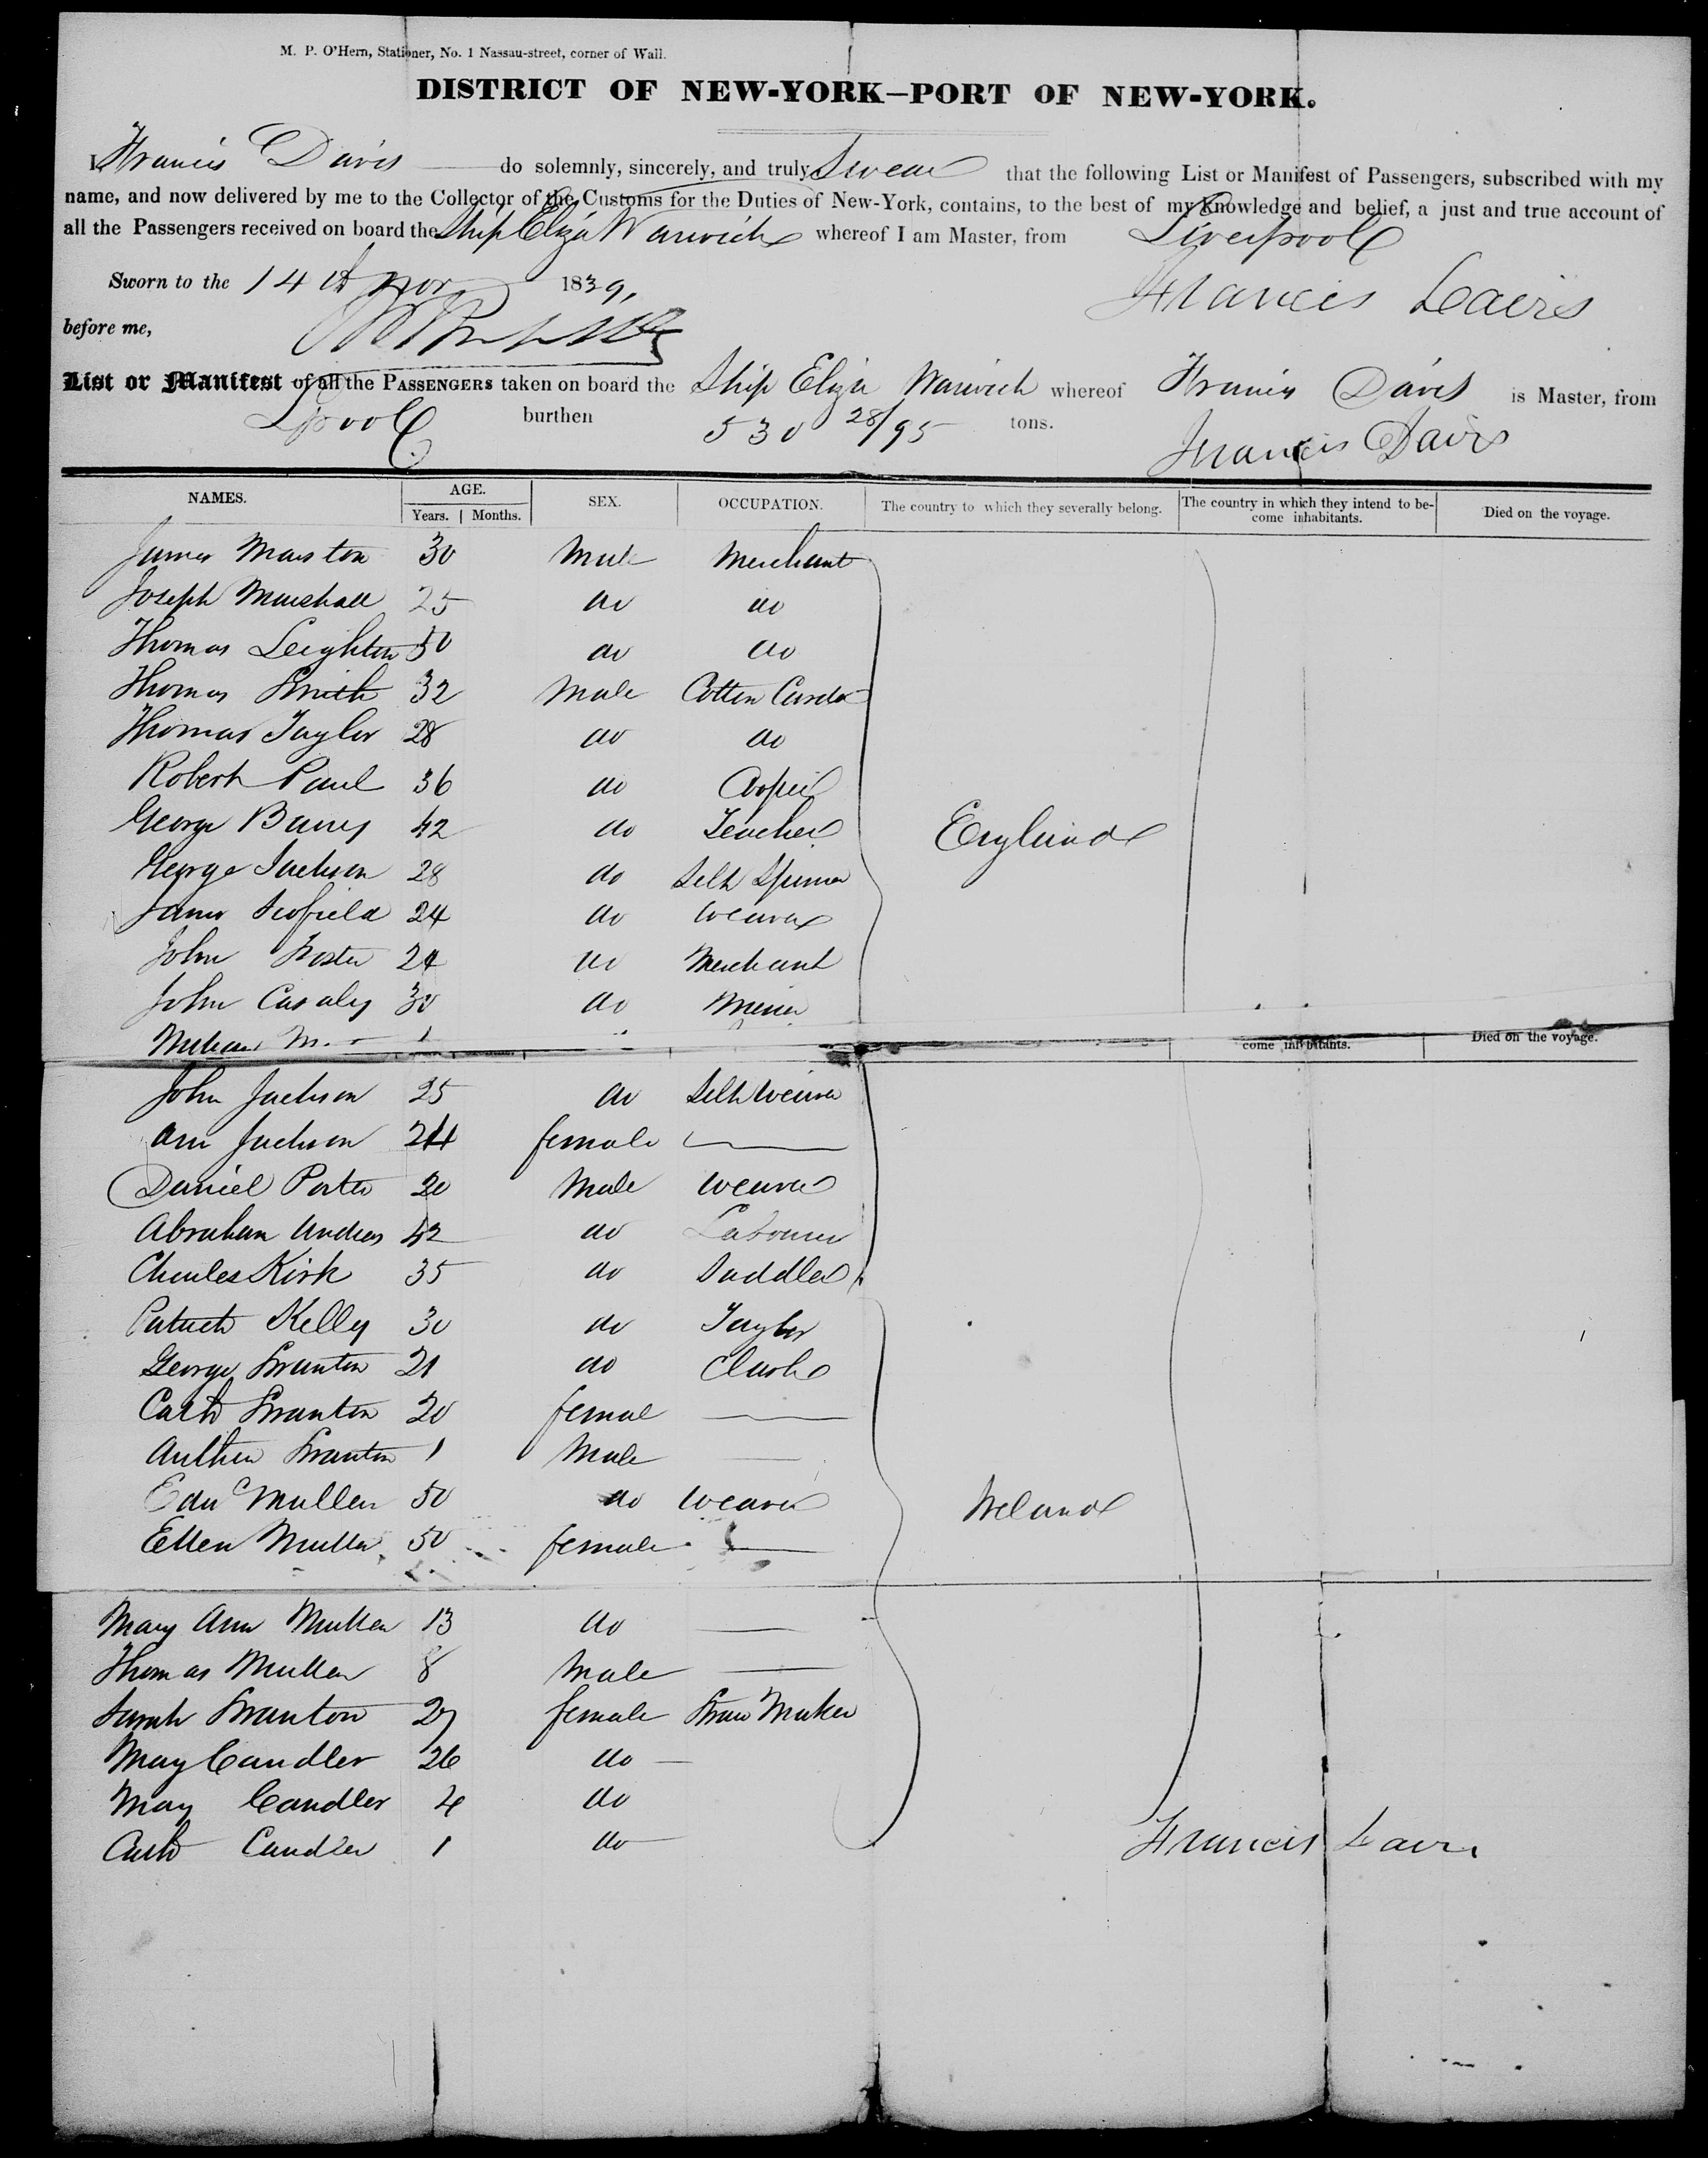 M. P. O'Hern, Stationer, No. 1 Nassau-street, corner of Wall.
DISTRICT OF NEW-YORK—PORT OF NEW-YORK.
I Francis Davis do solemnly, sincerely, and truly Swear that the following List or Manifest of Passengers, subscribed with my
name, and now delivered by me to the Collector of the Customs for the Duties of New-York, contains, to the best of my knowledge and belief, a just and true account of
all the Passengers received on board the Ship Eliza Warwick whereof I am Master, from Liverpool
Sworn to the 14th Nov 1839,
Francis Davis
before me,
List or Manifest of all the PASSENGERS taken on board the Ship Eliza Warwick whereof Francis Davis is Master, from
Lpool burthen 530 28/95 tons.
Francis Davis
NAMES. AGE. SEX. OCCUPATION. The country to which they severally belong. The country in which they intend to be- Died on the voyage.
Years. Months. come inhabitants.
James Marston 30 Male Merchant
Joseph Marshall 25 do do
Thomas Leighton 50 do do
Thomas Smith 32 Male Cotton Carder
Thomas Taylor 28 do do
Robert Paul 36 do Cooper
George Barry 42 do Teacher England
George Jackson 28 do Silk Spinner
James Scofield 24 do Weaver
John Foster 24 do Merchant
John Casaley 30 do Miner
come inhabitants. Died on the voyage.
John Jackson 25 do Silk Weaver
Ann Jackson 24 female
Daniel Porter 20 Male Weaver
Abraham Andrews 42 do Labourer
Charles Kirk 35 do Saddler
Patrick Kelly 30 do Taylor
George Branton 21 do Clark
Cath Branton 20 femal
Branton 1 Male
Edw Mullen 50 do Weaver Ireland
Ellen Mullen 50 female
Mary Ann Mullen 13 do
Thomas Mullen 8 Male
Sarah Branton 27 female Straw Maker
Mary Candler 26 do
Mary Candler 4 do
Cath Candler 1 do
Francis Davis